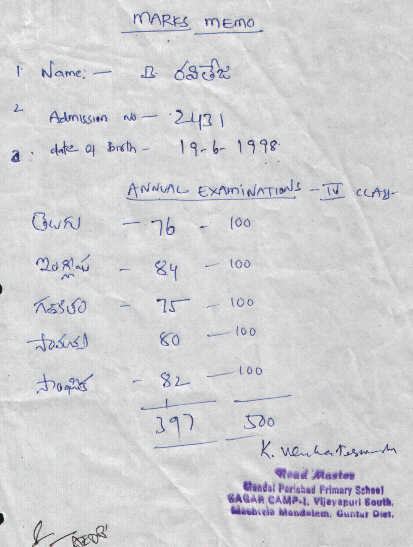 MARKS MEMO
1 Name: - B రవితేజ
2 Admission no - 2431
3. date of Birth - 19-6-1998
ANNUAL EXAMINATIONS - IV CLASS-
తెలుగు - 76 - 100
ఇంగ్లీషు - 84 - 100
గణితం - 75 - 100
80 - 100
- 82 - 100
397 500
K. Venkateswarlu
Head Master
Mandal Parishad Primary School
SAGAR CAMP-I, Vijayapuri South.
Mandalam, Guntur Dist.